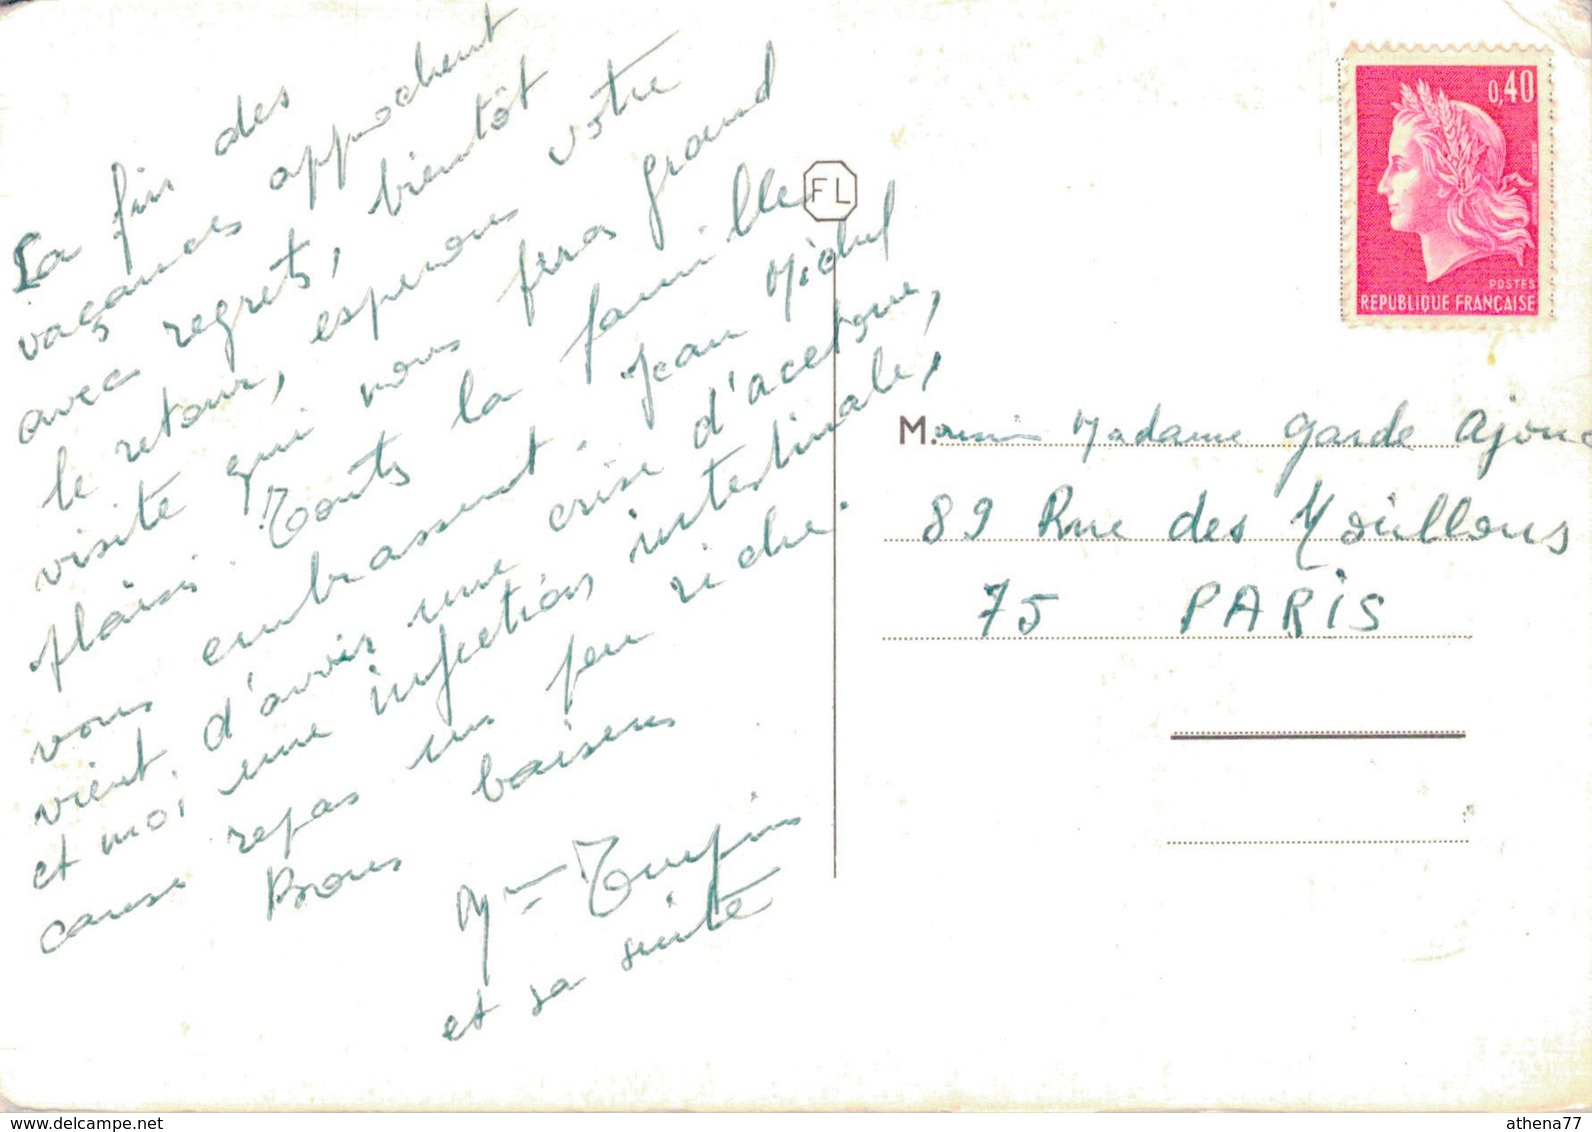 La fin des
vaçances approchent
avec regrets, bientôt
le retour, esperons votre
visite qui nous fera grand
plaisir. Touts la famille
vous embrassent. Jean Michel
vient d'avoir une crise d'acetone,
et moi une infection intestinale,
cause repas un peu riche.
Bons baisers
Mme Turpin
et sa suite
FL
0,40
POSTES
REPUBLIQUE FRANÇAISE
M. Madame Garde
89 Rue des Morillons
75 PARIS
delcampe.net
athena77